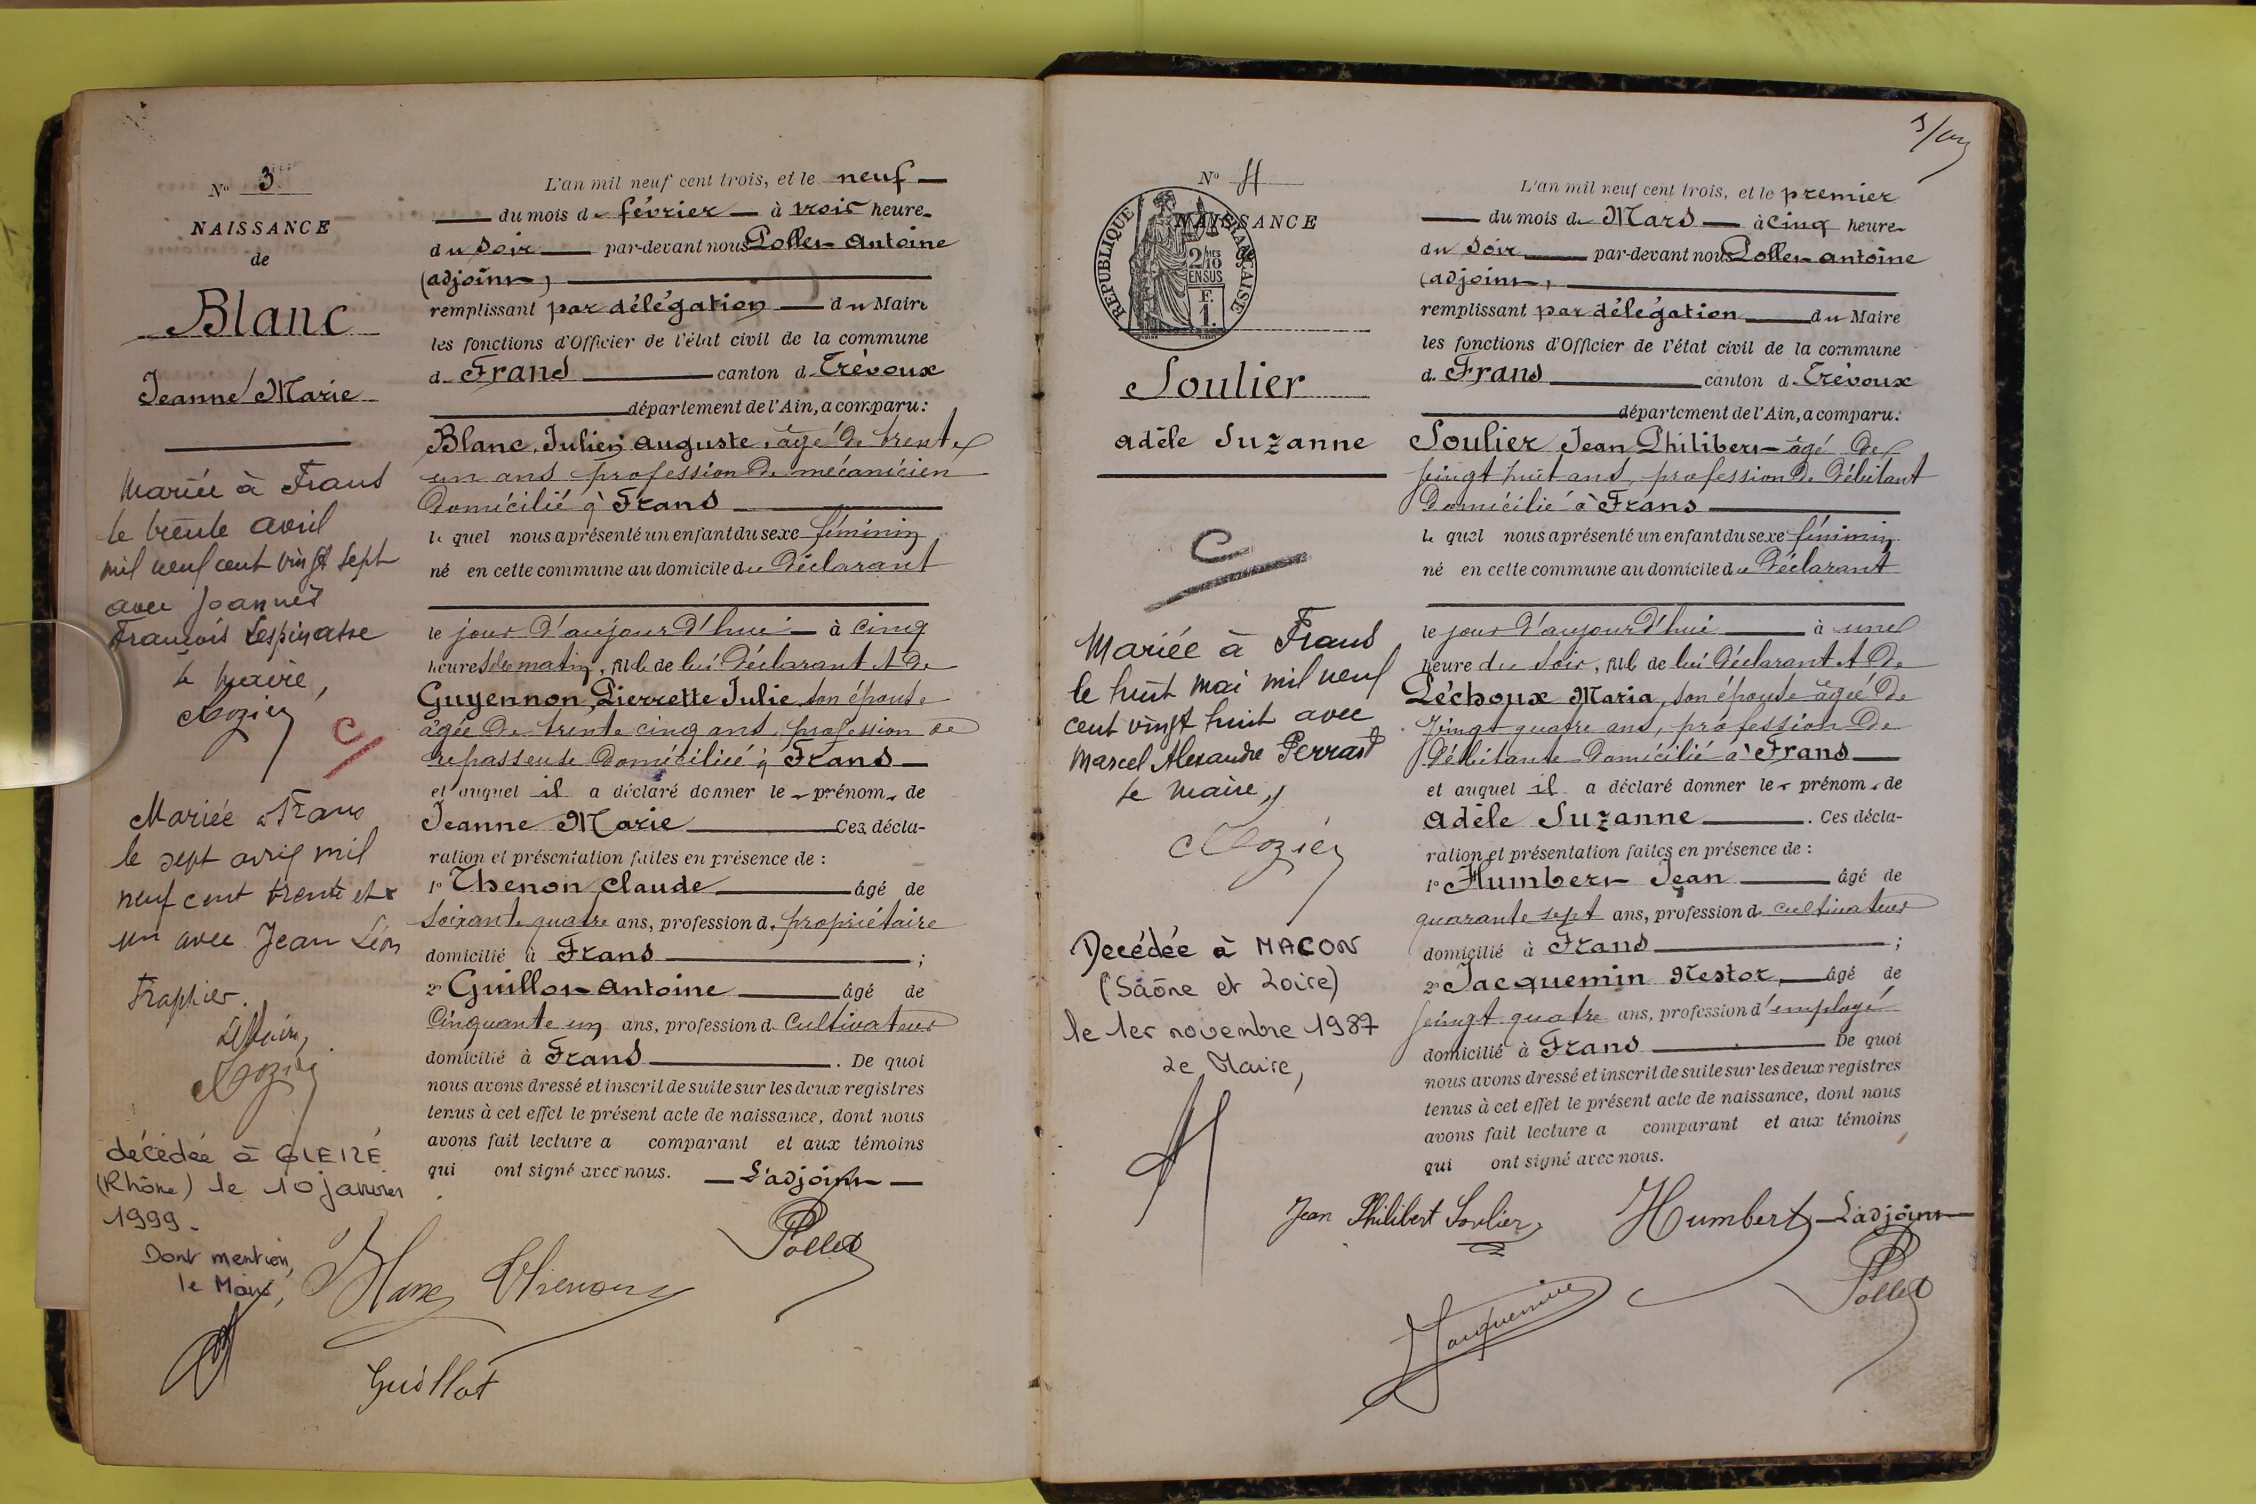 N° 3
NAISSANCE
de
Blanc
Jeanne Marie
Mariée à Frans
le trente avril
mil neuf cent vingt sept
avec Joannès
François Lespinasse
Le Maire,
C
Mariée à Frans
le sept avril mil
neuf cent trente et
un avec Jean Léon
Frappier.
Le Maire,
décédée à GLEIZÉ
(Rhône) le 10 janvier
1999.
Dont mention,
le Maire,
L'an mil neuf cent trois, et le neuf
du mois de février à trois heures
du soir par-devant nous Pollet Antoine
(adjoint)
remplissant par délégation du Maire
les fonctions d'Officier de l'état civil de la commune
de Frans canton de Trévoux
département de l'Ain, a comparu:
Blanc, Julien Auguste, âgé de trente
un ans profession de mécanicien
domicilié à Frans
lequel nous a présenté un enfant du sexe féminin
né en cette commune au domicile du déclarant
le jour d'aujourd'hui à cinq
heures du matin, fils de lui déclarant et de
Guyennon, Pierrette Julie son épouse
âgée de trente cinq ans, profession de
repasseuse domiciliée à Frans
et auquel il a déclaré donner les prénoms de
Jeanne Marie Ces décla-
ration et présentation faites en présence de :
1° Thenon Claude âgé de
soixante quatre ans, profession de propriétaire
domicilié à Frans ;
2° Guillot Antoine âgé de
cinquante un ans, profession de cultivateur
domicilié à Frans . De quoi
nous avons dressé et inscrit de suite sur les deux registres
tenus à cet effet le présent acte de naissance, dont nous
avons fait lecture a comparant et aux témoins
qui ont signé avec nous. L'adjoint
Pollet
Blanc Thenon
Guillot
N° 4
NAISSANCE
RÉPUBLIQUE FRANÇAISE
2/10 EN SUS
F. 1.
Soulier
Adèle Suzanne
C
Mariée à Frans
le huit mai mil neuf
cent vingt huit avec
Marcel Alexandre Perraut
Le Maire,
Decédée à MACON
(Saône et Loire)
le 1er novembre 1987
Le Maire,
L'an mil neuf cent trois, et le premier
du mois de Mars à cinq heures
du soir par-devant nous Pollet Antoine
(adjoint,
remplissant par délégation du Maire
les fonctions d'Officier de l'état civil de la commune
de Frans canton de Trévoux
département de l'Ain, a comparu:
Soulier Jean Philibert âgé de
vingt huit ans, profession de débitant
domicilié à Frans
lequel nous a présenté un enfant du sexe féminin
né en cette commune au domicile du déclarant
le jour d'aujourd'hui à une
heure du soir, fils de lui déclarant et de
Péchoux Maria, son épouse âgée de
vingt quatre ans, profession de
débitante domicilié à Frans
et auquel il a déclaré donner les prénoms de
Adèle Suzanne . Ces décla-
ration et présentation faites en présence de :
1° Humbert Jean âgé de
quarante sept ans, profession de cultivateur
domicilié à Frans ;
2° Jacquemin Nestor, âgé de
vingt quatre ans, profession d'employé
domicilié à Frans De quoi
nous avons dressé et inscrit de suite sur les deux registres
tenus à cet effet le présent acte de naissance, dont nous
avons fait lecture a comparant et aux témoins
qui ont signé avec nous.
Jean Philibert Soulier Humbert L'adjoint
Pollet
Jacquemin